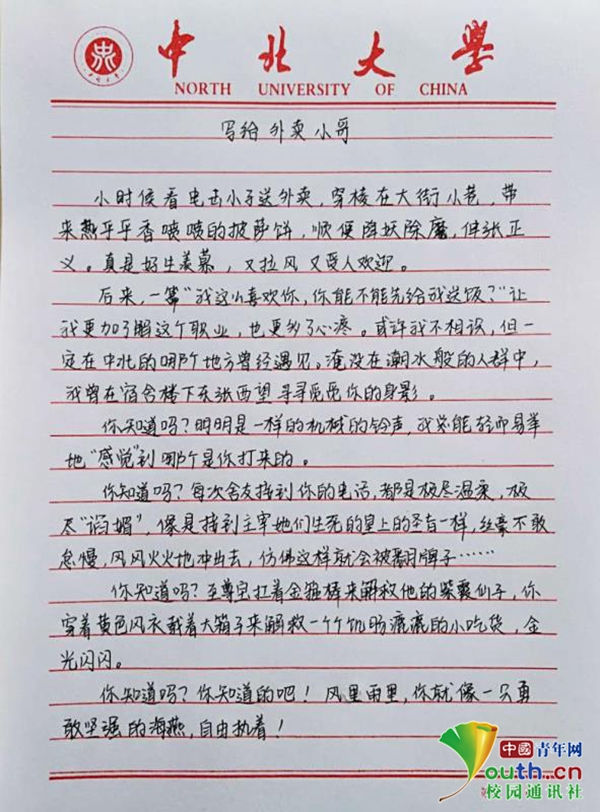 中北大學
NORTH UNIVERSITY OF CHINA
写给外卖小哥
小时候看电击小子送外卖，穿梭在大街小巷，带
来热乎乎香喷喷的披萨饼，顺便降妖除魔，伸张正
义。真是好生羡慕，又拉风又受人欢迎。
后来，一第“我这么喜欢你，你能不能先给我送饭？”让
我更加了解这个职业，也更多了心疼。或许我不相识，但一
定在中北的哪个地方曾经遇见。淹没在潮水般的人群中，
我曾在宿舍楼下东张西望寻寻觅觅你的身影。
你知道吗？明明是一样的机械的铃声，我总能轻而易举
地“感觉”到哪个是你打来的。
你知道吗？每次舍友接到你的电话，都是极尽温柔，极
尽“谄媚”，像是接到主宰她们生死的皇上的圣旨一样，丝毫不敢
怠慢，风风火火地冲出去，仿佛这样就会被翻牌子……
你知道吗？至尊宝扛着金箍棒来解救他的紫霞仙子，你
穿着黄色风衣载着大箱子来解救一个个饥肠漉漉的小吃货，金
光闪闪。
你知道吗？你知道的吧！风里雨里，你就像一只勇
敢坚强的海燕，自由执着！
中國青年网
youth.cn
校园通讯社